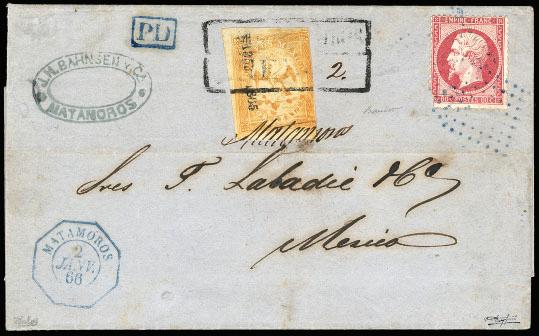 PD
J.H. BAHNSEN Y Cª
MATAMOROS
2.
EMPIRE FRANC.
80 c POSTES 80 c
Matamoros
Sres F. Labadie & Co
Mexico
MATAMOROS
2
JANV.
66